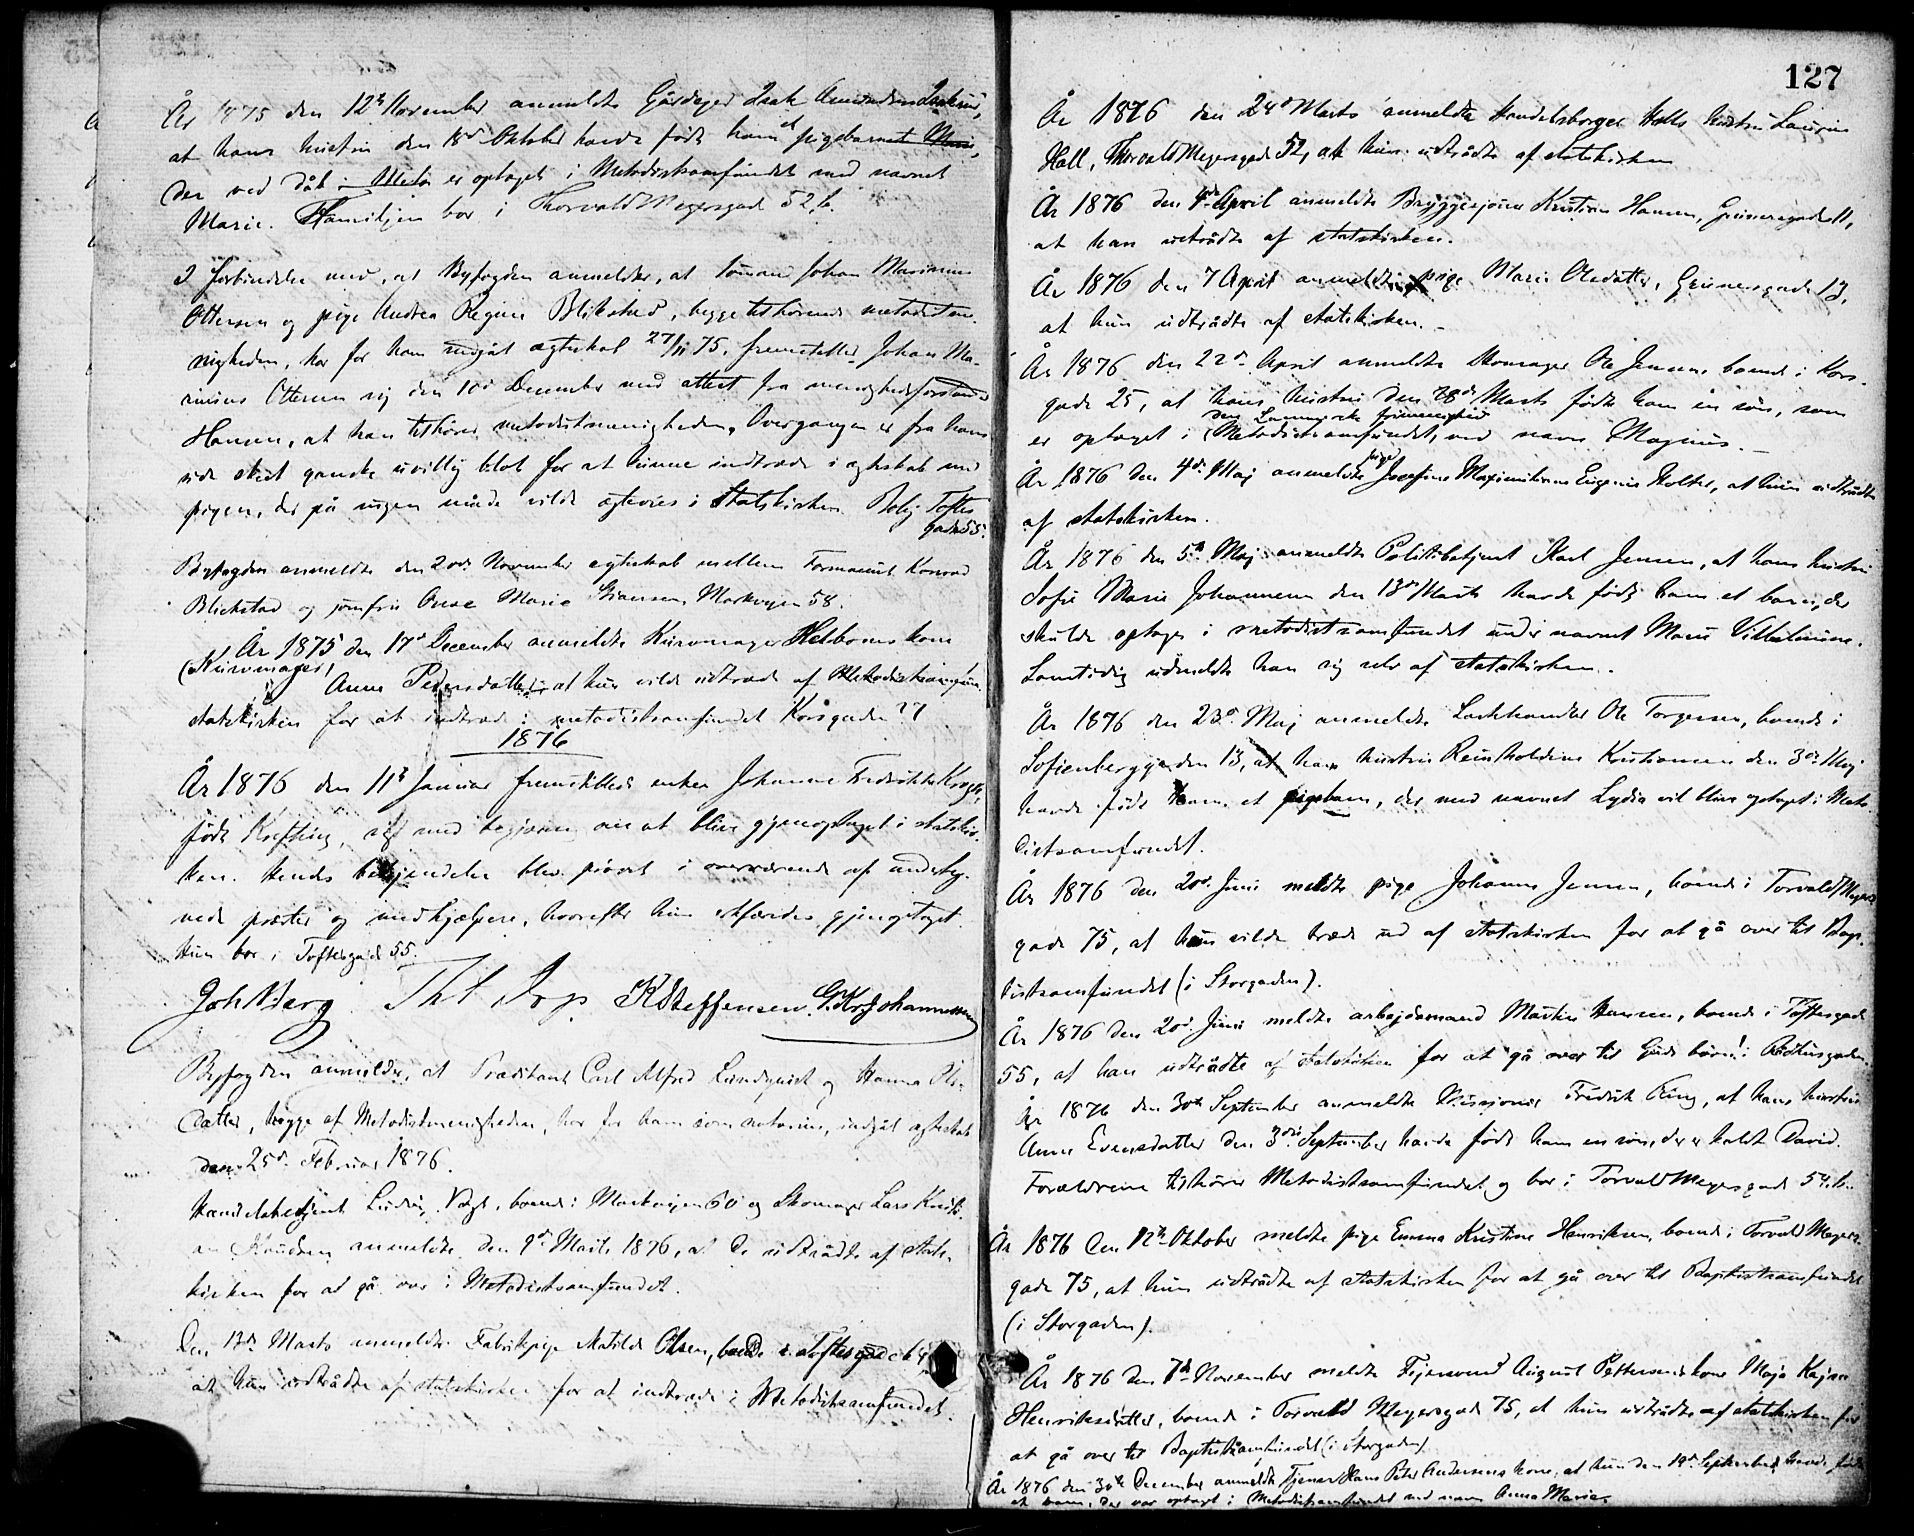 År 1875 den 12te November anmeldte Gårdejer Isak Amundsen
at hans hustru den 18de Oktober havde født ham et pigebarn
der ved dåb er optaget i Metodistsamfundet med navnet
Marie. Familjen bor i Thorvald Meyersgad 52, b.
I forbindelse med, at Byfogden anmelder, at Sømand Johan Marinius
Ottersen og pige Andrea Regine Blikstad, begge tilhørende metodistme-
nigheden, har for ham indgåt ægteskab 27/11 75, fremstiller Johan Ma-
rinius Ottersen sig den 10de December med attest fra menighedsforstander
Hansen, at han tilhører metodistmenigheden. Overgangen er fra hans
side sket ganske uvillig blot for at kunne indtræde i ægteskab med
pigen, der på ingen måde vilde ægtevies i Statskirken. Bolig Toftes
gade 55.
Byfogden anmeldte den 20de November ægteskab mellem Formand Konrad
Blickstad og jomfru Marie Markvejen 58.
År 1875 den 17de December anmeldte Kurvmager Helboms kone
(Kurvmager)
Anne Pedersdatter, at hun vilde udtræde af
statskirken for at indtræde i metodistsamfundet Korsgaden 77
1876
År 1876 den 11te Januar fremstilleds enken Johanne Fredrikke Krogh,
født Krefting, sig med begjæring om at blive gjenoptaget i statskir-
ken. Hendes bekjendelse blev prøvet i overværende af underteg-
nede prester og medhjælpere, hvorefter hun erklæredes gjenoptaget.
Hun bor i Toftesgad 55.
Joh Berg Th K Steffensen. G. Kr. Johannessen
Byfogden anmelder, at Prædikant Carl Alfred Lundquist og Hanna Ols-
datter, begge af Metodistmenigheden, har for ham som notarius, indgåt ægteskab
den 25de Februar 1876.
Handelsbetjent Ludvig Vogt, boende i Markvejen 60 og Skomager Lars Knud-
sen Knudsen anmeldte den 9de Marts 1876, at de udtrådte af stats-
kirken for at gå over i Metodistsamfundet.
Den 13de Marts anmeldte Fabrikpige Matilde Olsen, boende i Toftesgade 64
at hun udtrådte af statskirken for at indtræde i Metodistsamfundet.
127
År 1876 den 24de Marts anmeldte Handelsborger Halls hustru Laurine
Hall, Thorvald Meyersgade 52, at hun udtrådte af statskirken
År 1876 den 4de April anmeldte Bryggesjouer Kristian Hansen, Grünersgade 11,
at han udtrådte af statskirken.
År 1876 den 7 April anmeldte pige Marie Olsdatter, Grünersgade 13,
at hun udtrådte af statskirken. -
År 1876 den 22de April anmeldte Skomager Ole Jensen, boende i Kors-
gade 25, at hans hustru den 28de Marts fødte ham en søn, som
den Lammerske frimenighed
er optaget i Metodistsamfundet, med navn Magnus. -
År 1876 den 4de Maj anmeldte pige Josefine Maximiliane Eugenie Holter, at hun udtrådte
af statskirken.
År 1876 den 5te Maj anmeldte Politibetjent Karl Jensen, at hans hustru
Sofie Marie Johannesen den 13de Marts havde født ham et barn, der
skulde optages i metodistsamfundet under navnet Marie Vilhelmine.
Samtidig udmeldte han sig selv af statskirken.
År 1876 den 23de Maj anmeldte Ole Torgersen, boende i
Sofienberggaden 13, at hans hustru Reinholdine Kristiansen den 3de Maj
havde født ham et pigebarn, der med navnet Lydia vil blive optaget i Meto-
distsamfundet.
År 1876 den 20de Juni meldte pige Johanne Jensen, boende i Torvald Meyers
gade 75, at hun vilde træde ud af statskirken for at gå over til Bap-
tistsamfundet (i Storgaden).
År 1876 den 20de Juni meldte arbejdsmand Martin Hansen, boende i Toftesgade
55, at han udtrådte af statskirken for at gå over til "Guds børn" i Rådhusgaden.
År 1876 den 30te September anmeldte Missionær Fredrik Ring, at hans hustru
Anne Evensdatter den 3die September havde født ham en søn, der er kaldt David.
Forældrene tilhører Metodistsamfundet og bor i Torvald Meyersgade 54, b.
År 1876 den 12te Oktober meldte pige Emma Kristine Henriksen, boende i Torvald Meyers-
gade 75, at hun udtrådte af statskirken for at gå over til Baptistsamfundet
(i Storgaden).
År 1876 den 7de November meldte August Pettersens kone Maja Kajsa
Henriksdatter, boende i Torvald Meyersgade 75, at hun udtrådte af statskirken for
at gå over til Baptistsamfundet (i Storgaden)
År 1876 den 30te December anmeldte Tjener Hans Peter Andersens kone, at hun den 19de September havde født
et barn, der var optaget i Metodistsamfundet med navn Anna Marie.